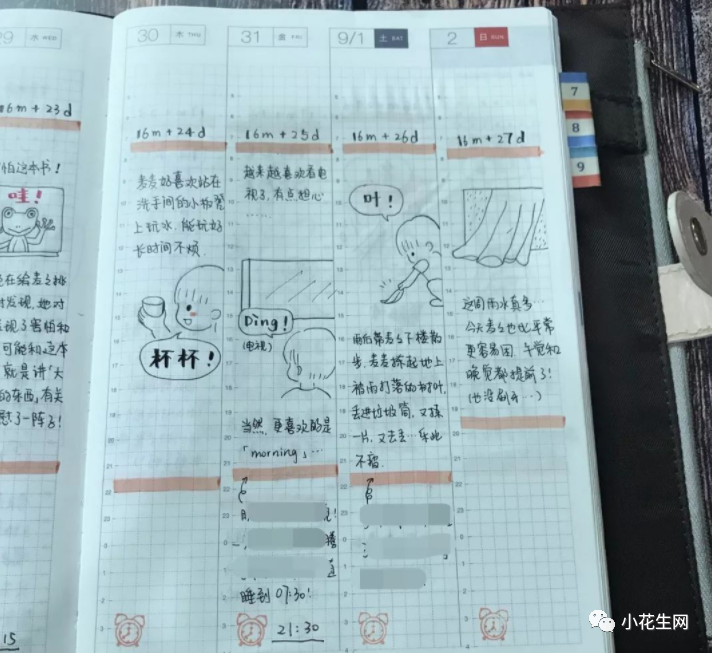 29 水 WED
16m+23d
怕这本书！
哇！
15
30 木 THU
16m+24d
麦麦好喜欢站在
洗手间的小板凳
上玩水，能玩好
长时间不烦.
杯杯！
31 金 FRI
16m+25d
越来越喜欢看电
视了，有点担心
……
Dīng！
(电视)
当然，更喜欢的是
「morning」…
睡到 07:30!
21:30
9/1 土 SAT
16m+26d
叶！
雨后带麦麦下楼散
步，麦麦捡起地上
被雨打落的树叶，
丢进垃圾筒，又捡
一片，又去丢…乐此
不疲.
2 日 SUN
16m+27d
这周雨水真多…
今天麦麦也比平常
更容易困，午觉和
晚觉都提前了！
(也没刷牙…)
7
8
9
小花生网